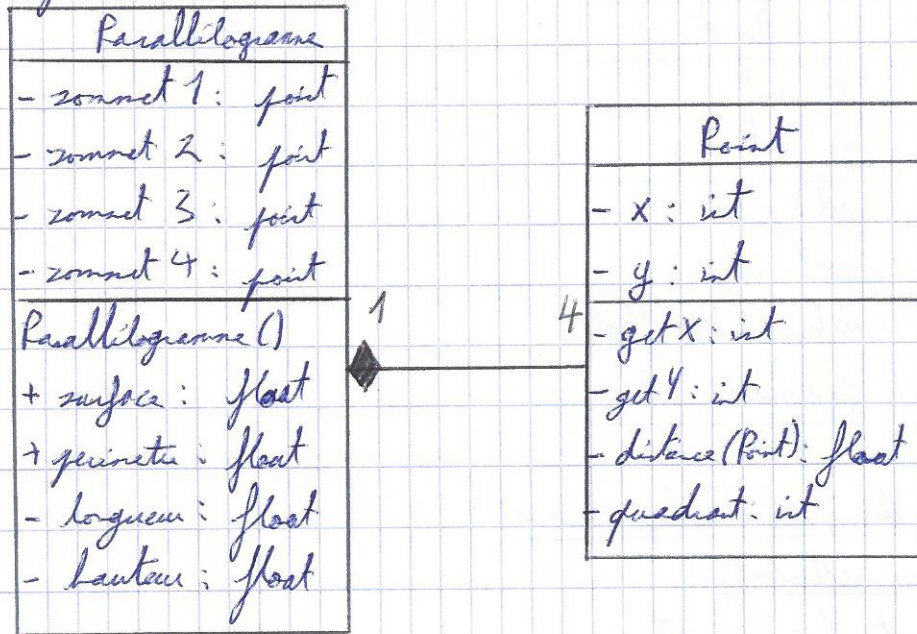 Parallilogramme
- sommet 1 : point
- sommet 2 : point
- sommet 3 : point
- sommet 4 : point
Parallilogramme ()
+ surface : float
+ perimetre : float
- longueur : float
- hauteur : float
1
4
Point
- x : int
- y : int
- get X : int
- get Y : int
- distance (Point) : float
- quadrant : int